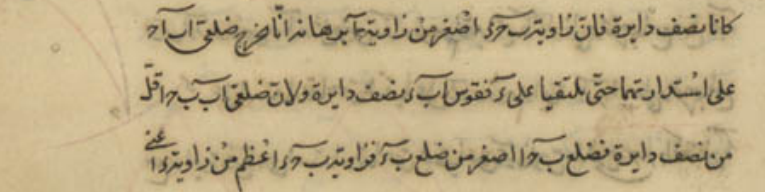 كانا نصف دايرة فان زاوية ب حرء اصغر من زاوية ا برهانه انا نخرج ضلعى اب ا ح
على استدارتهما حتى يلتقيا على ء فقوس اب ء نصف دايرة ولان ضلعى اب ب ح اقل
من نصف دايرة فضلع ب ح اصغر من ضلع ب ء فزاوية ب ح ء اعظم من زاوية ء اعنى